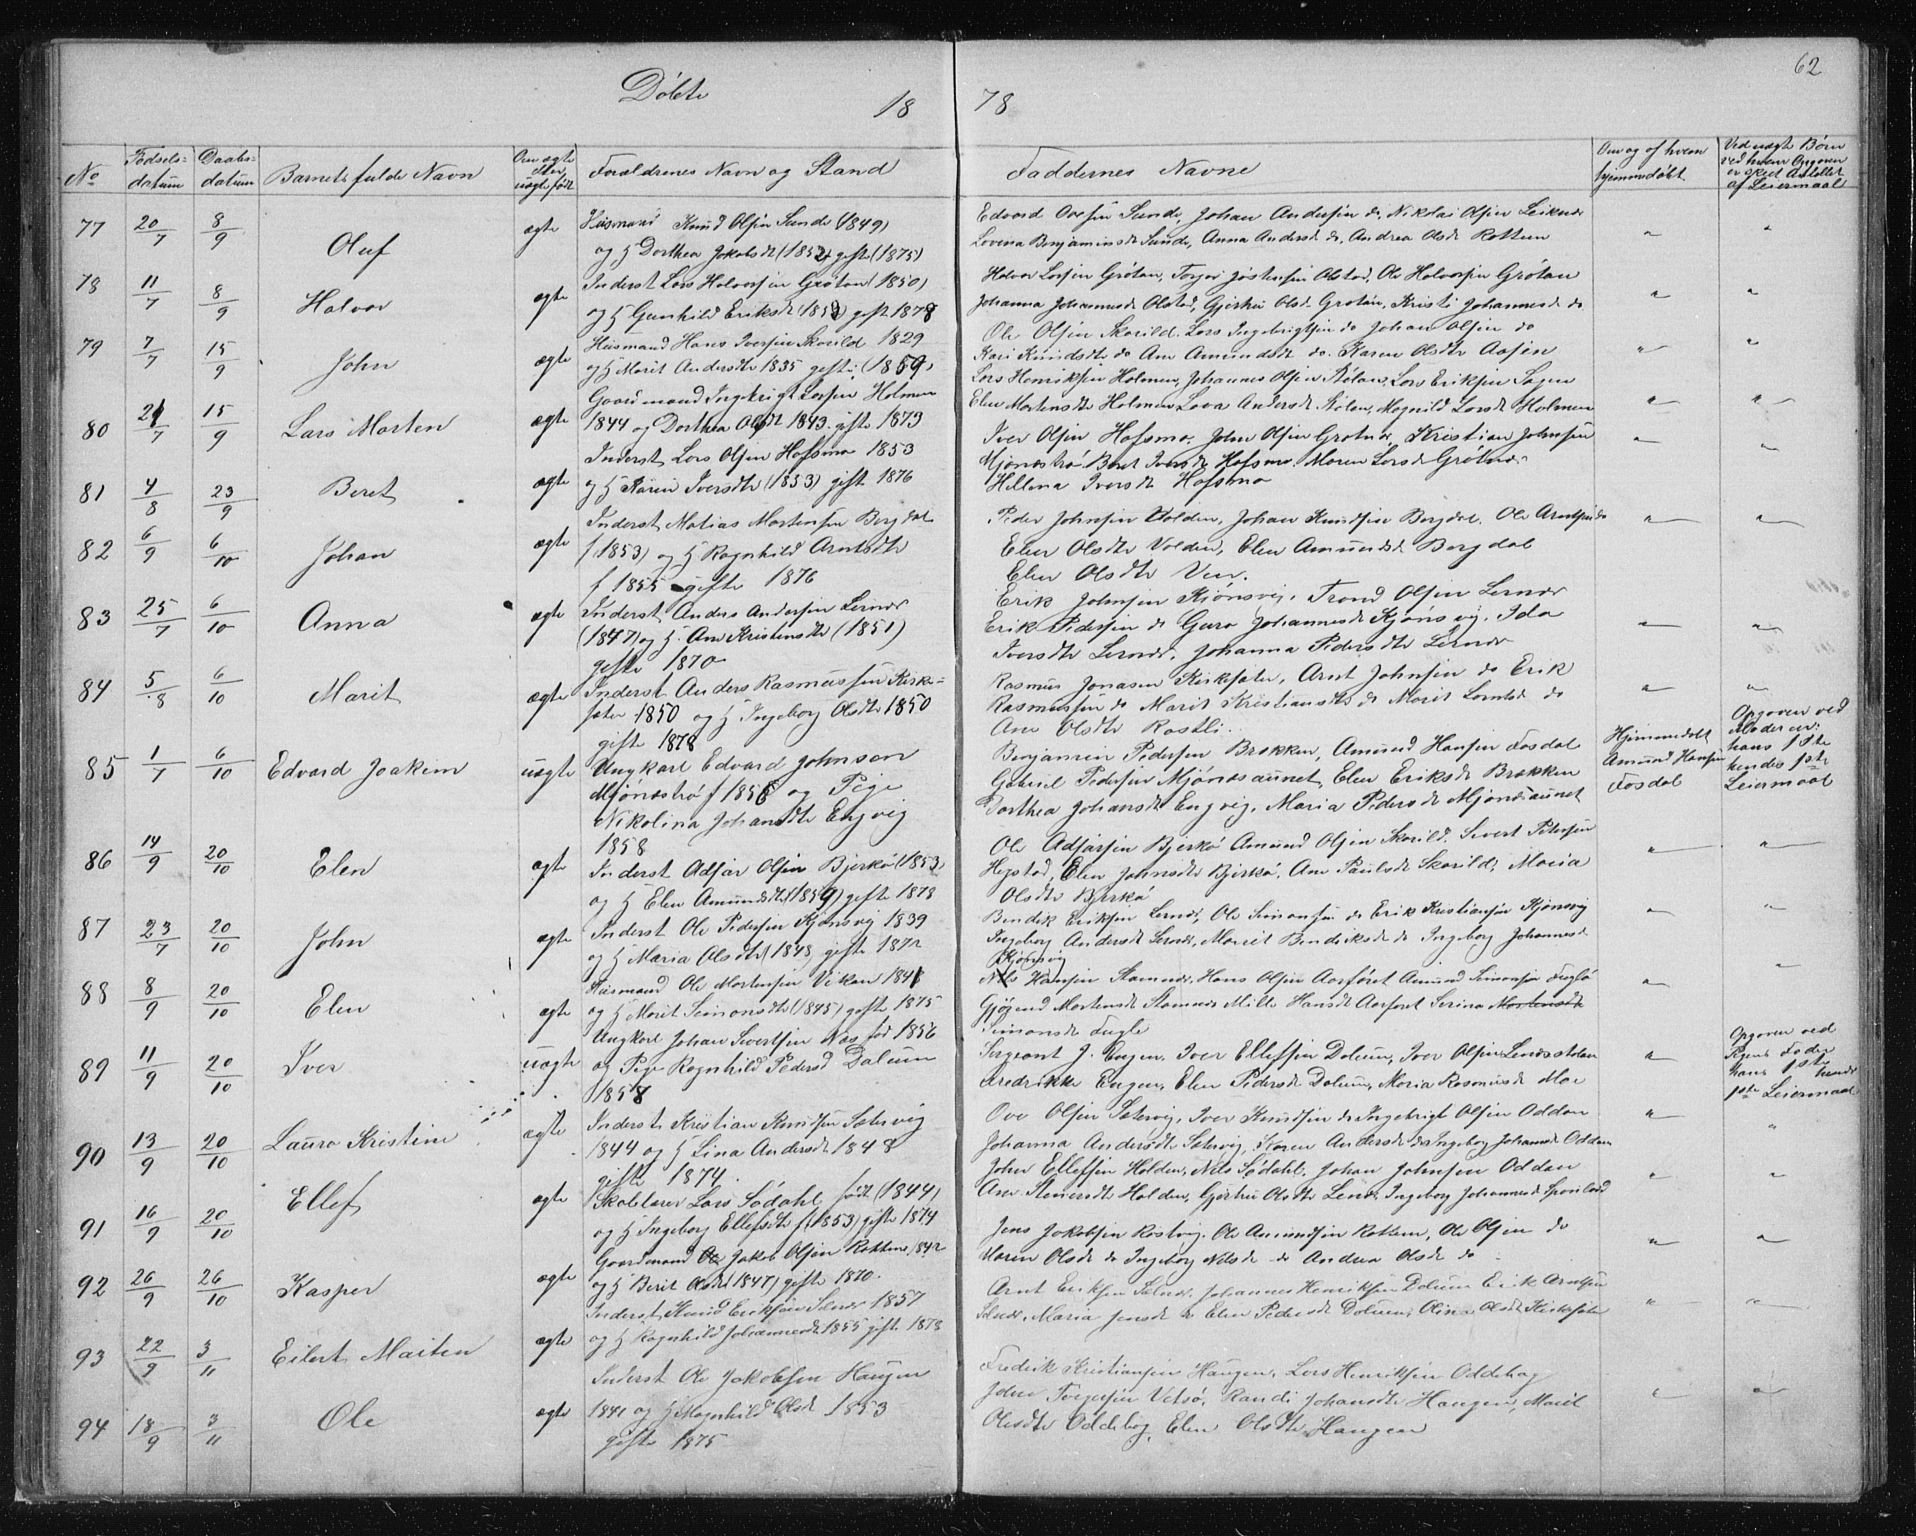 62
Døbte
18 78
No
Fødsels-
datum
Daabs-
datum
Barnets fulde Navn
Om ægte
eller
uægte født
Forældrenes Navn og Stand
Faddernes Navne
Om og af hvem
hjemmedøbt
Ved uægte Børn
ved hvem Opgaven
er skeet Antallet
af Leiermaal
77 20/7 8/9 Oluf ægte
Husmand Knud Olsen Sunde (1849)
og H Dorthea Jakobsdt (1852) gifte (1875)
Edvard Ovesen Sunde, Johan Andersen do, Nikolai Olsen Leiknes
Lovina Benjaminsdt Sunde, Anna Andersdt do, Andrea Olsdt Rottem
78 11/7 8/9 Halvor ægte
Inderst Lars Halvorsen Grøtan (1850)
og H Gunhild Eriksdt (1852) gift 1878
Halvor Larsen Grøtan, Torger Jostensen Olstad, Ole Halvorsen Grøtan
Johanna Johannesdt Olstad, Gjertru Olsd Grøtan, Kristi Johannesdt do
79 7/7 15/9 John ægte
Husmand Hans Iversen Skorild 1829
og H Marit Andersdt 1835 gifte (1859)
Ole Olsen Skorild, Lars Ingebrigtsen do Johan Olsen do
Kari Knudsdt do Ane Amundsdt do. Karen Olsdtr Aasen
80 21/7 15/9 Lars Morten ægte
Gaardmand Ingebrigt Larsen Holmen
1844 og Dorthea Olsdt 1843 gifte 1873
Lars Henriksen Holmen, Johannes Olsen Stølan, Lars Eriksen Sagen
Elen Mortensdtr Holmen Lava Andersdt Stølan, Magnild Larsdt Holmen
81 4/8 23/9 Beret ægte
Inderst Lars Olsen Hofsmo 1853
og H Karen Iversdtr (1853) gifte 1876
Iver Olsen Hofsmo, John Olsen Grøtnes, Kristian Johnsen
Mjønestrø Beret Iversdt Hofsmo, Maren Larsdt Grøtnes
Hellena Iversdt Hofsmo
82 6/9 6/10 Johan ægte
Inderst Matias Mortensen Bergdal
f (1853) og H Ragnhild Arntsdtr
f 1855 gifte 1876
Peder Johnsen Volden, Johan Knudsen Bergdal, Ole Arntsen do
Elen Olsdtr Volden, Elen Amundsd Bergdal
Elen Olsdtr Ven.
83 25/7 6/10 Anna ægte
Inderst Anders Andersen Lernes
(1847) og H. Ane Kristensdtr (1851)
gifte 1870
Erik Johnsen Kjønsvig, Trond Olsen Lernes
Erik Pedersen do Guro Johannesdt Kjønsvig, Ida
Iversdtr Lernes, Johanna Pedersdtr Lernes
84 5/8 6/10 Marit ægte
Inderst Anders Rasmussen Kirke-
sæter 1850 og H Ingeborg Olsdtr 1850
gifte 1878
Rasmus Jonasen Kirksæter, Arnt Johnsen do Erik
Rasmussen do Marit Kristiansdt do Marit do
Ane Olsdtr Rostli.
85 1/7 6/10 Edvard Joakim uægte
Ungkarl Edvard Johnsen
Mjønestrø f 1858 og Pige
Nikolina Johansdtr Engvig
1858
Benjamin Pedersen Brekken, Amund Hansen Fosdal
Gabriel Pedersen Mjønesaunet, Elen Eriksdt Brekken
Dorthea Johansdt Engvig, Maria Pedersdt Mjønesaunet
Hjemmedøbt
Amund Hansen
Fosdal
Opgaven ved
Moderen:
hans 1ste
hendes 1ste
Leiermaal
86 14/9 20/10 Elen ægte
Inderst Adsær Olsen Bjerkø (1853)
og H Elen Amundsdt (1859) gifte 1878
Ole Adsærsen Bjerkø Amund Olsen Skorild, Sivert Petersen
Hegstad, Elen Johnsdtr Bjerkø, Ane Paulsdt Skorild, Maria
Olsdtr Bjerkø
87 23/7 20/10 John ægte
Inderst Ole Pedersen Kjønsvig 1839
og H Maria Olsdt (1848) gifte 1872
Bendik Eriksen Lernes, Ole Simonsen do Erik Kristiansen Kjønsvig
Ingeborg Andersdt Lernes, Marit Bendiksdt do Ingeborg Johannesd
Kjønsvig
88 8/9 20/10 Elen ægte
Husmand Ole Mortensen Vikan 1841
og H Marit Simonsdtr (1845) gifte 1875
Nils Hansen Stamnes, Hans Olsen Aarføret Amund Simonsen Fuglø
Gjøgend Mortensdt Stamnes Mille Hansdt Aarføret Serina Mortensdt
Simonsdt Fugle
89 11/9 20/10 Iver uægte
Ungkarl Johan Sivertsen Næs fød 1856
og Pige Ragnhild Pedersd Dalum
1858
Sergeant J. Engen, Iver Ellefsen Dolum, Iver Olsen Lenesstølan
Fredrikke Engen, Elen Pedersdt Dolum, Maria Rasmusdt Moe
Opgaven ved
Pigens Fader
hans 1ste
hendes
1ste Leiermaal
90 13/9 20/10 Laura Kristine ægte
Inderst Kristian Knudsen Sætervig
1844 og H Lina Andersdt 1848
gifte 1874.
Ove Olsen Sætervig, Iver Knudsen do Ingebrigt Olsen Oddan
Johanna Andersdtr Sætervig, Karen Andersdt do Ingeborg Johansd Oddan
91 16/9 20/10 Ellef ægte
Skolelærer Lars Sødahl født (1844)
og H Ingeborg Ellefsdtr f (1853) gifte 1874
John Ellefsen Holden, Nils Sødahl, Johan Johnsen Oddan
Ane Steversdtr Holden, Gjertru Olsdtr Lenes, Ingeborg Johannesd
92 26/9 26/10 Kasper ægte
Gaardmand Ole Jakob Olsen Rottem 1842
og H Berit Olsdt (1847) gifte 1870.
Jens Jakobsen Rostvig, Ole Amundsen Rottem, Ole Olsen do
Maren Olsdt do Ingeborg Nilsdt do Andrea Olsdt do
93 22/9 3/11 Eilert Maiten ægte
Inderst Knud Eriksen Sætnes 1857
og H Ragnhild Johannesdt 1855 gifte 1878
Arnt Eriksen Sætnes, Johannes Henriksen Dolum Erik Arntsen
Sætnes, Maria Jensdt do Elen Pedersdt Dolum, Olina Olsdt Kirksæter
94 18/9 3/11 Ole ægte
Inderst Ole Jakobsen Haugen
1841 og H Magnhild Olsdt 1853
gifte 1875
Fredrik Kristiansen Haugen, Lars Henriksen Oddebog
John Torgersen Vetsø, Randi Johansdtr Haugen, Marit
Olesdtr Oddebog, Elen Olsdtr Haugen